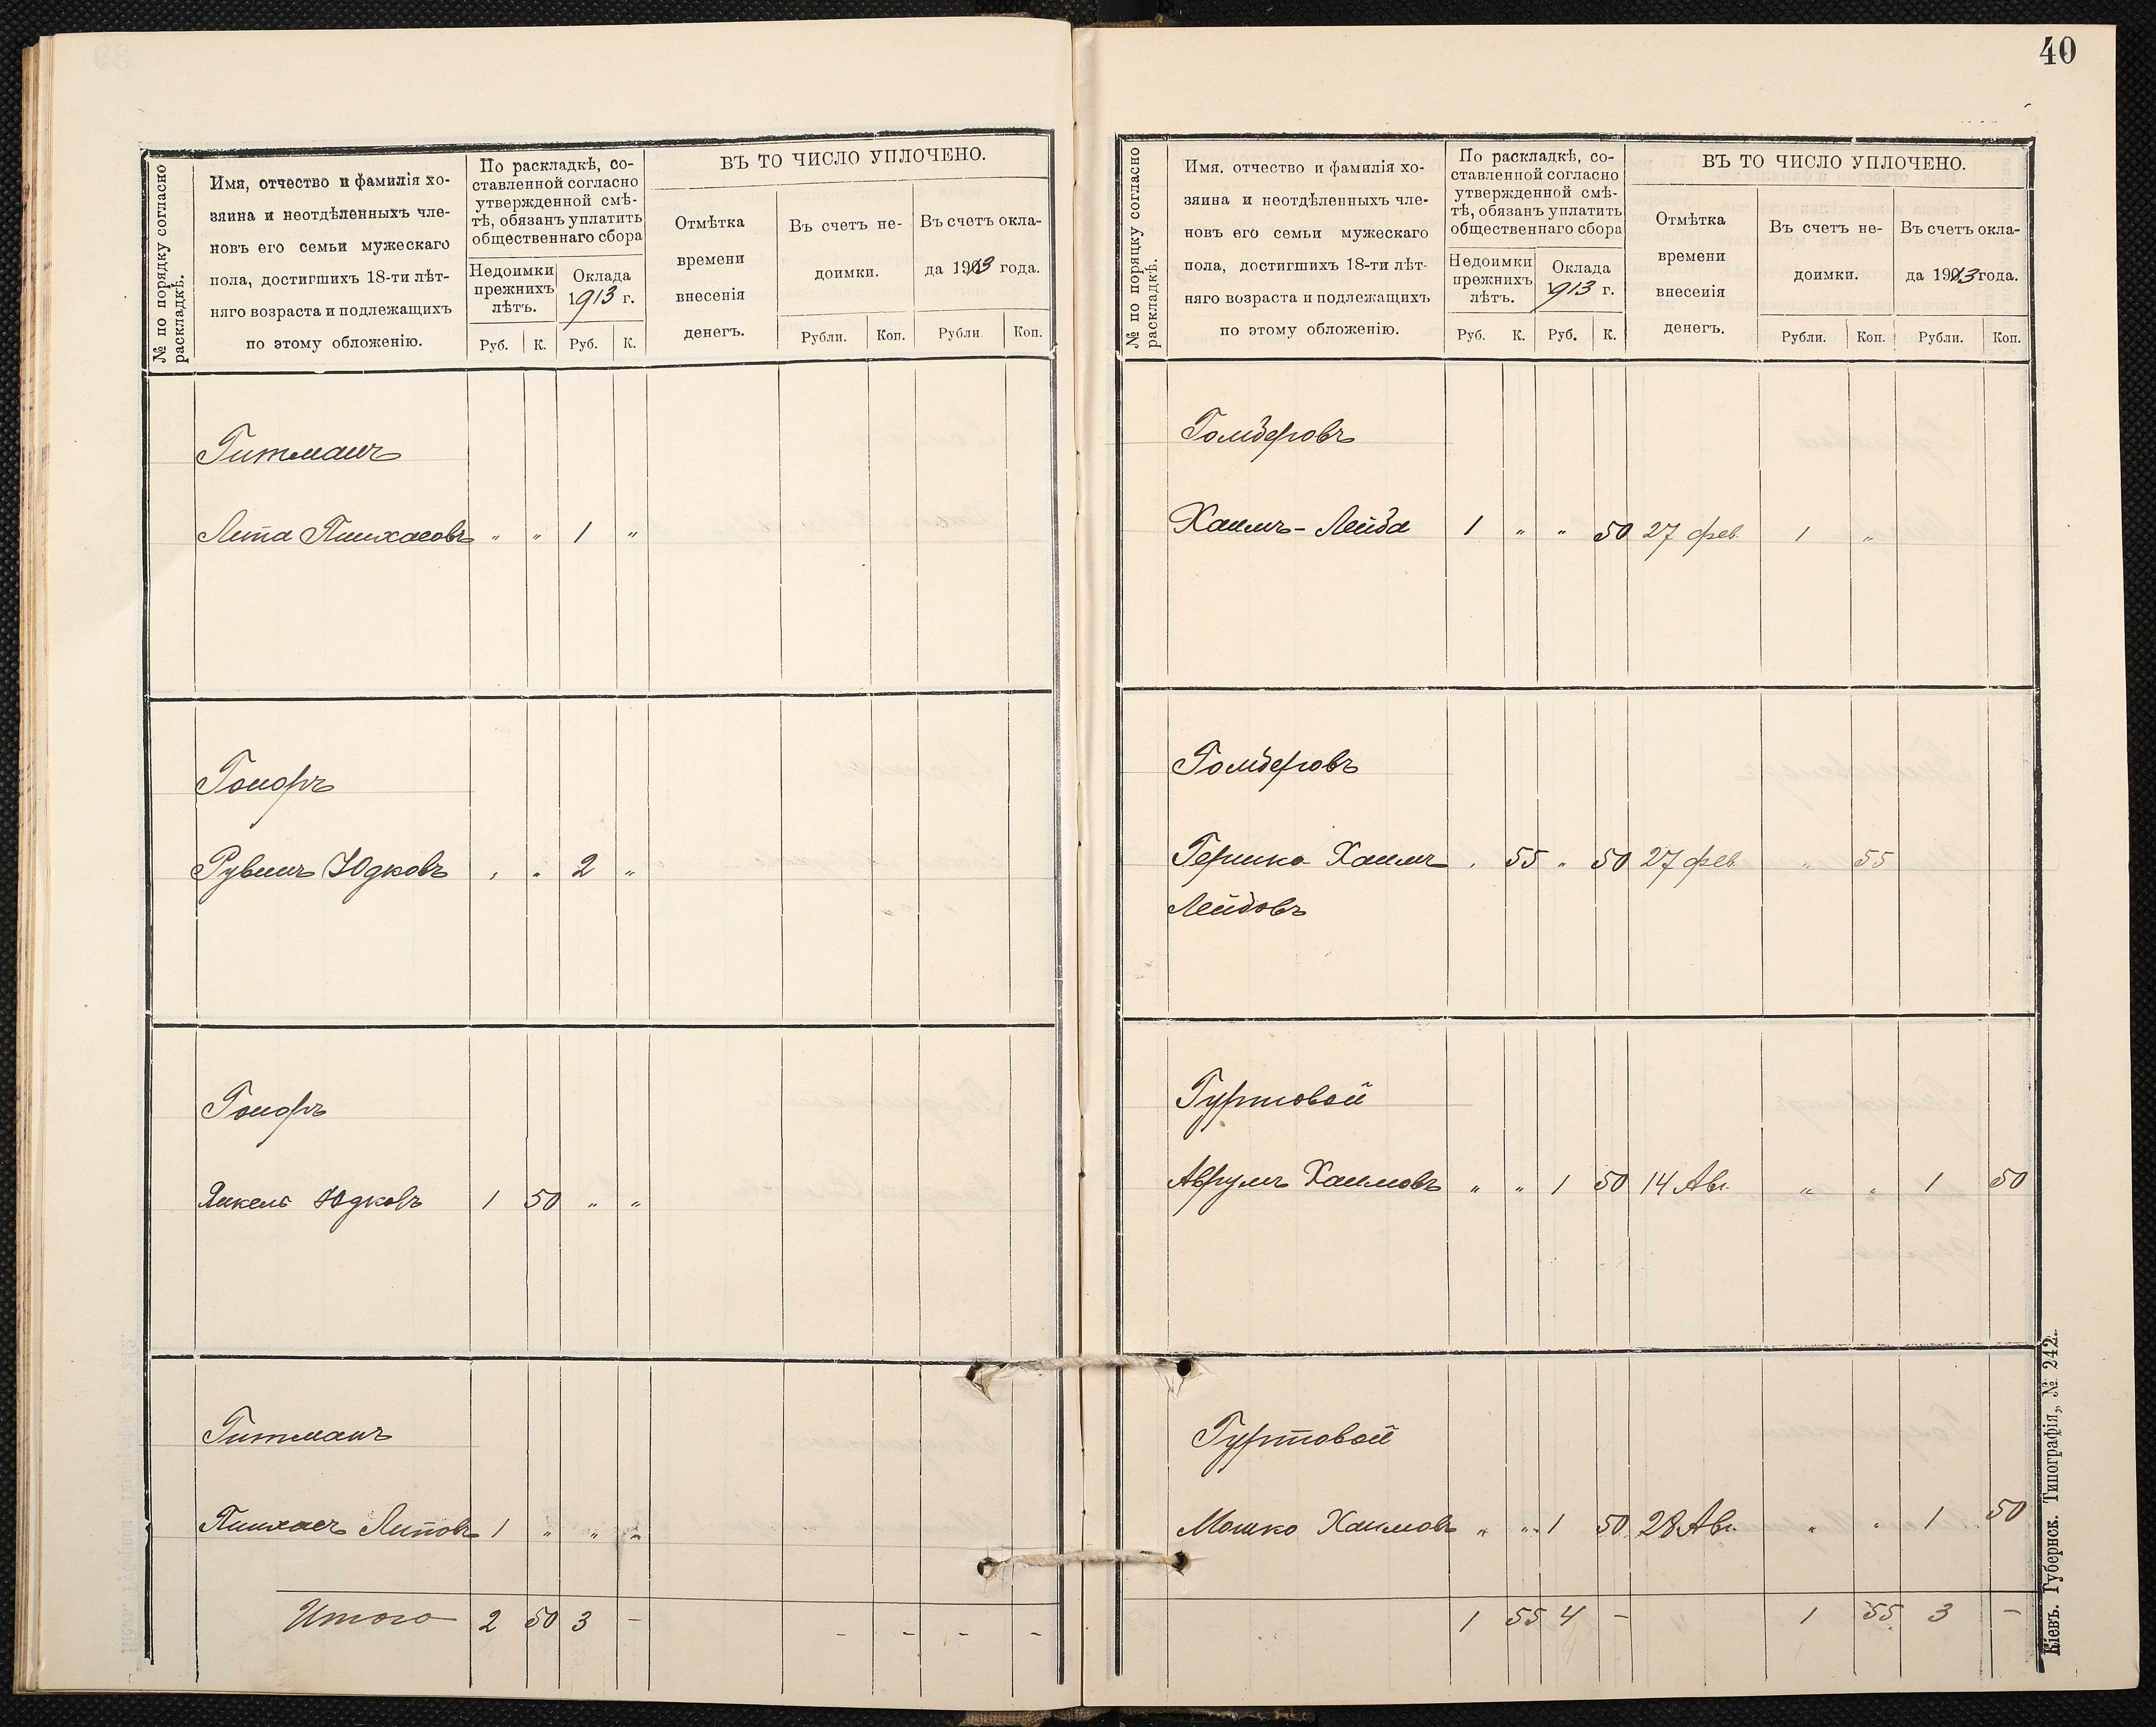 40
№ по порядку согласно
раскладкѣ.
Имя, отчество и фамилія хо-
зяина и неотдѣленныхъ чле-
новъ его семьи мужескаго
пола, достигшихъ 18-ти лѣт-
няго возраста и подлежащихъ
по этому обложенію.
По раскладкѣ, со-
ставленной согласно
утвержденной смѣ-
тѣ, обязанъ уплатить
общественнаго сбора
Недоимки
прежнихъ
лѣтъ.
Оклада
1913 г.
Руб. К. Руб. К.
ВЪ ТО ЧИСЛО УПЛОЧЕНО.
Отмѣтка
времени
внесенія
денегъ.
Въ счетъ не-
доимки.
Въ счетъ окла-
да 1913 года.
Рубли. Коп. Рубли Коп.
Гитманъ
Липа Пинхасовъ " " 1 "
Гоноръ
Рувинъ Юдковъ " " 2 "
Гоноръ
Янкель Юдковъ 1 50 " "
Гитманъ
Пинхасъ Липовъ 1 " " "
Итого 2 50 3 - - - - -
№ по порядку согласно
раскладкѣ.
Имя. отчество и фамилія хо-
зяина и неотдѣленныхъ чле-
новъ его семьи мужескаго
пола, достигшихъ 18-ти лѣт-
няго возраста и подлежащихъ
по этому обложенію.
По раскладкѣ, со-
ставленной согласно
утвержденной смѣ-
тѣ, обязанъ уплатить
общественнаго сбора
Недоимки
прежнихъ
лѣтъ.
Оклада
1913 г.
Руб. К. Руб. К.
ВЪ ТО ЧИСЛО УПЛОЧЕНО.
Отмѣтка
времени
внесенія
денегъ.
Въ счетъ не-
доимки.
Въ счетъ окла-
да 1913 года.
Рубли. Коп. Рубли. Коп.
Хаимъ-Лейба 1 " " 50 27 фев. 1 "
Гершко Хаимъ " 55 " 50 27 фев. " 55
Лейбовъ
Гуртовой
Аврумъ Хаимовъ " " 1 50 14 Авг. " " 1 50
Гуртовой
Мошко Хаимовъ " " 1 50 28 Авг. " " 1 50
1 55 4 - 1 55 3 -
Кіевъ. Губернск. Типографія,, № 242.